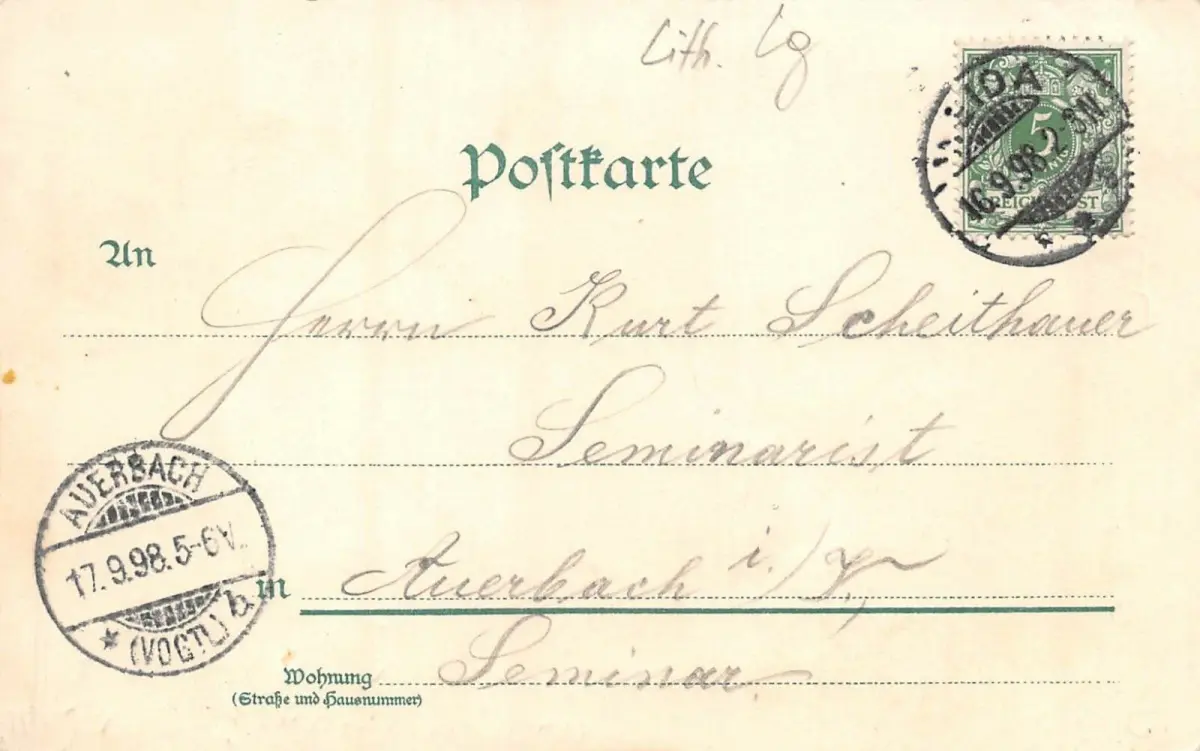 Lith. Lg
Postkarte
5
REICHSPOST
16.9.98.2-3N
An
Herrn Kurt Scheithauer
Seminarist
AUERBACH
17.9.98.5-6V.
* (VOGTL) b.
in Auerbach i./V.,
Wohnung Seminar
(Straße und Hausnummer)